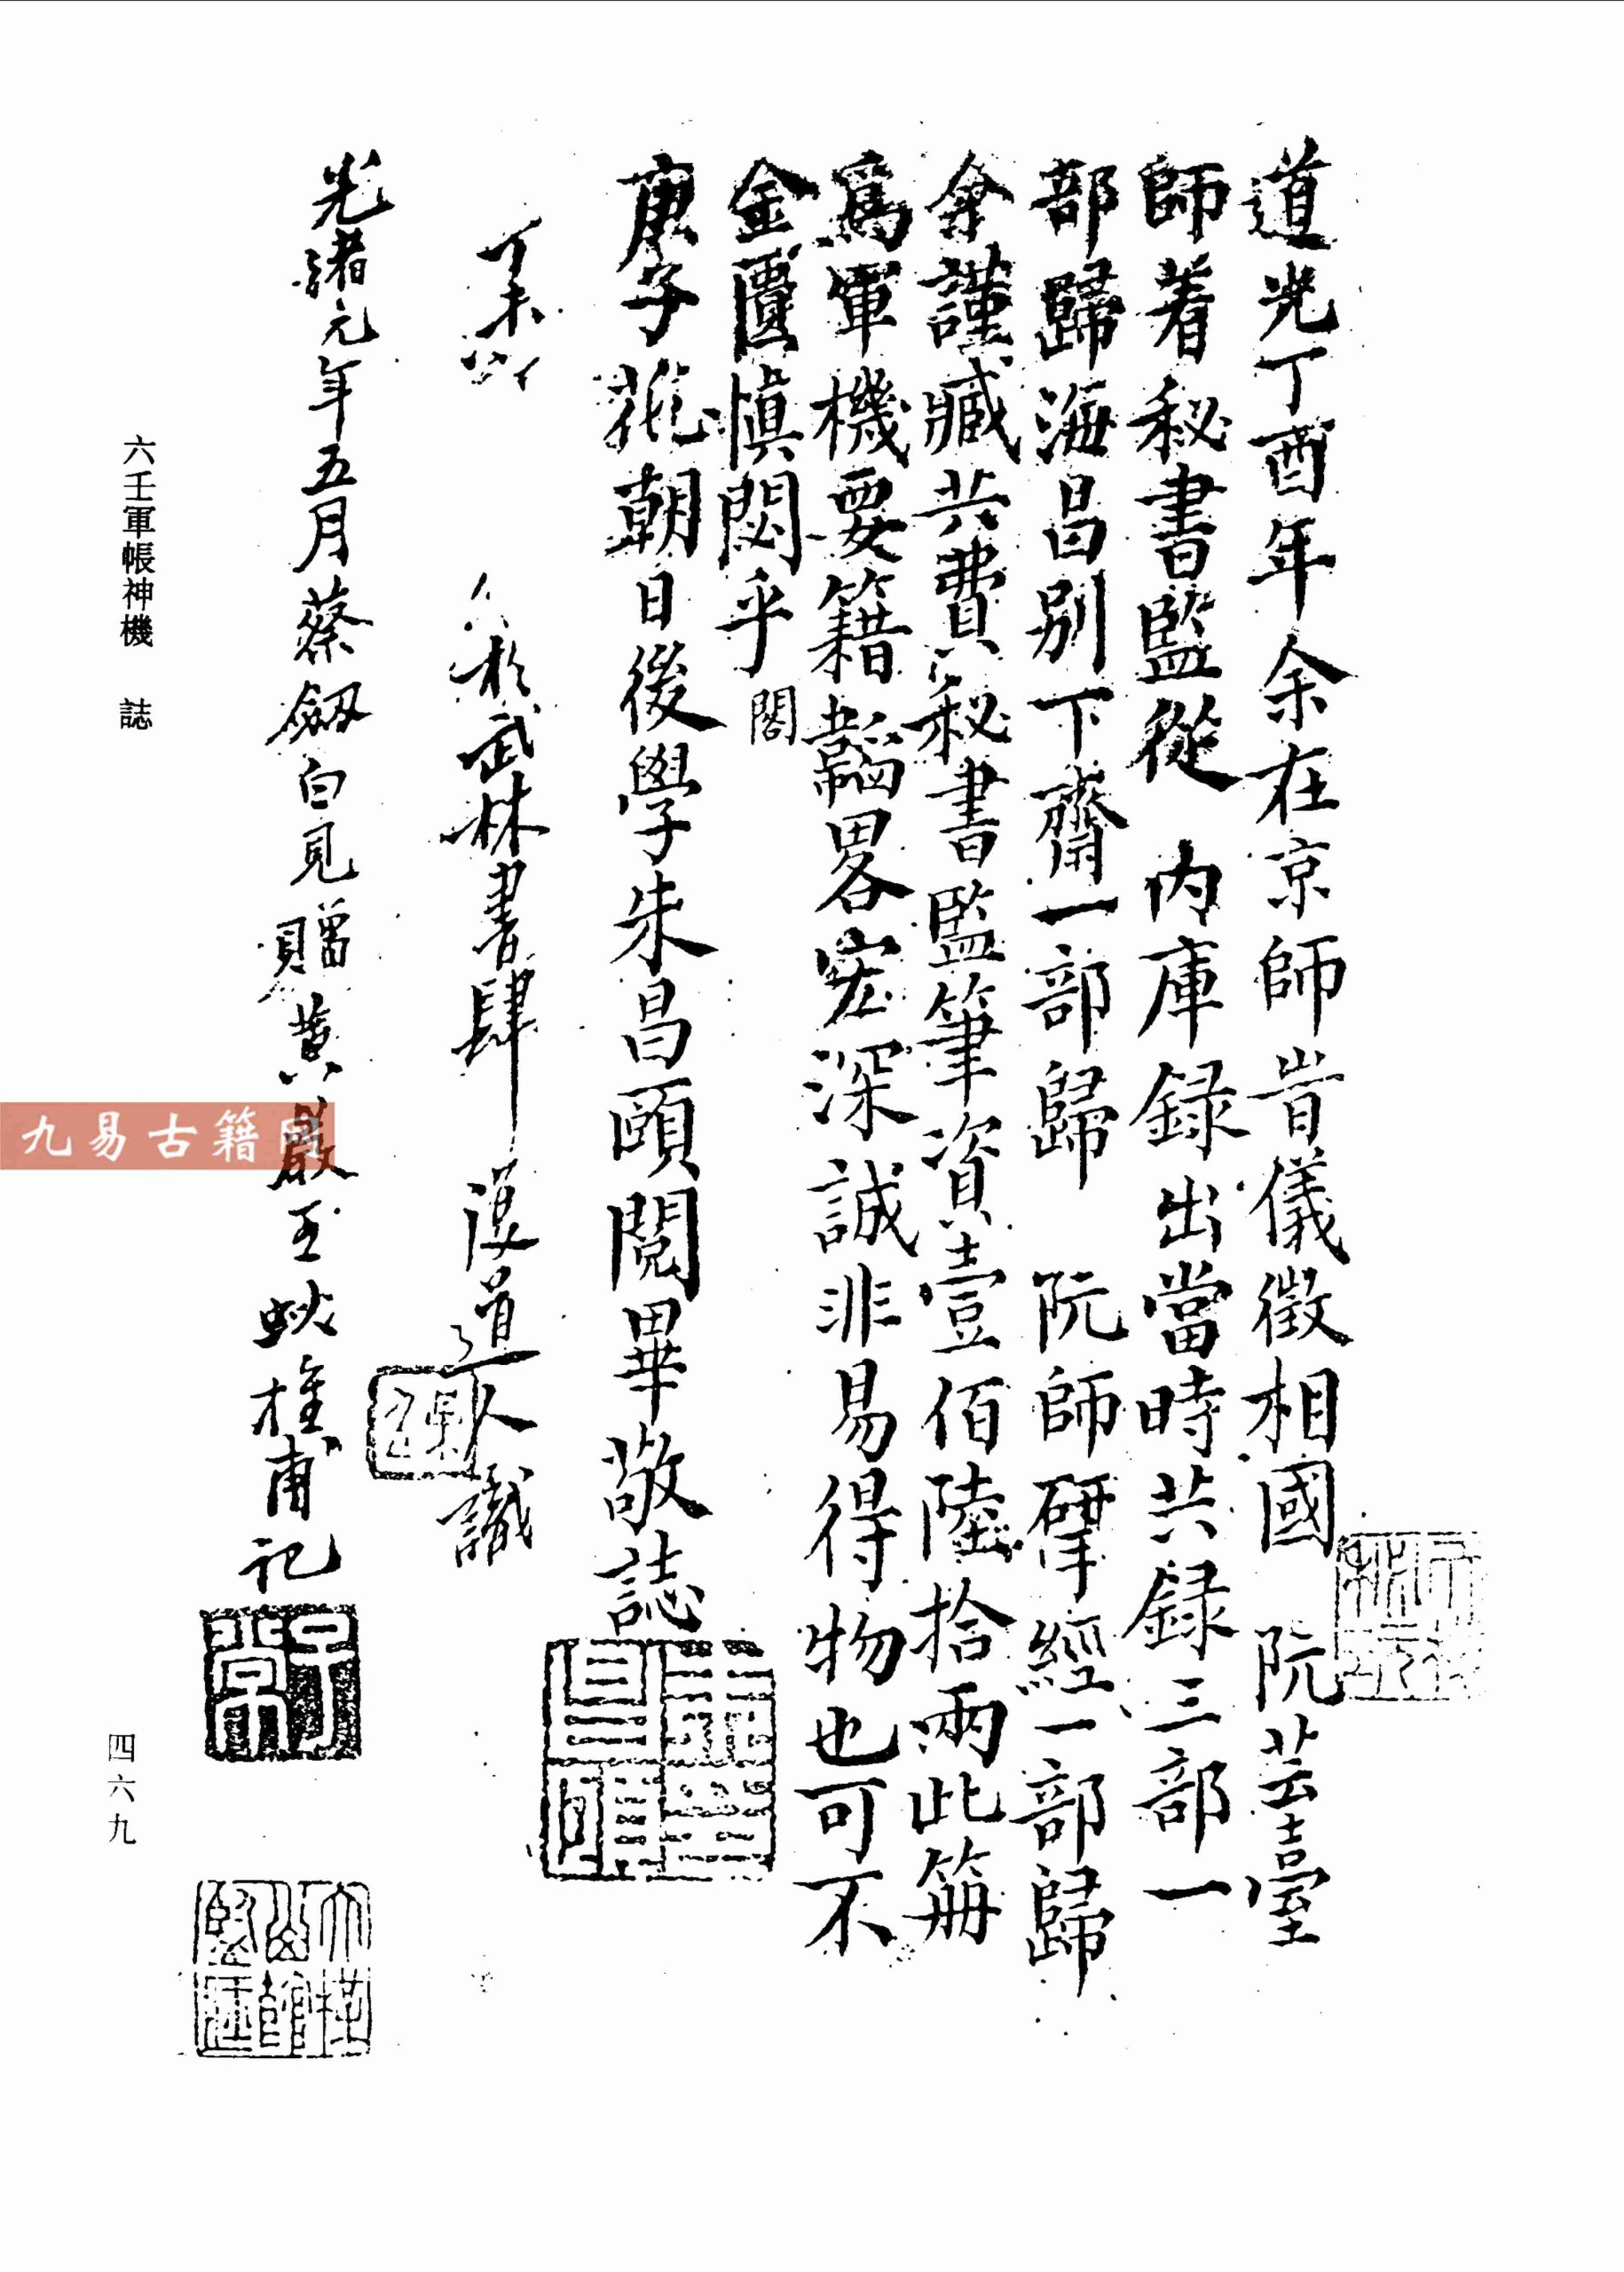 道光丁酉年余在京師旹儀徵相國 阮芸臺
師着秘書監從 内庫録出當時共録三部一
部歸海昌别下齋一部歸 阮師揅經一部歸
余謹藏共費秘書監筆資壹佰陸拾兩此册
爲軍機要籍韜畧宏深誠非易得物也可不
金匱慎閟乎
閣
庚子花朝日後學朱昌頤閱畢敬誌
丁未
於武林書肆 道人識
光緒元年五月蔡劔白見贈黄巖王 甫記
六壬軍帳神機 誌
四六九
九易古籍